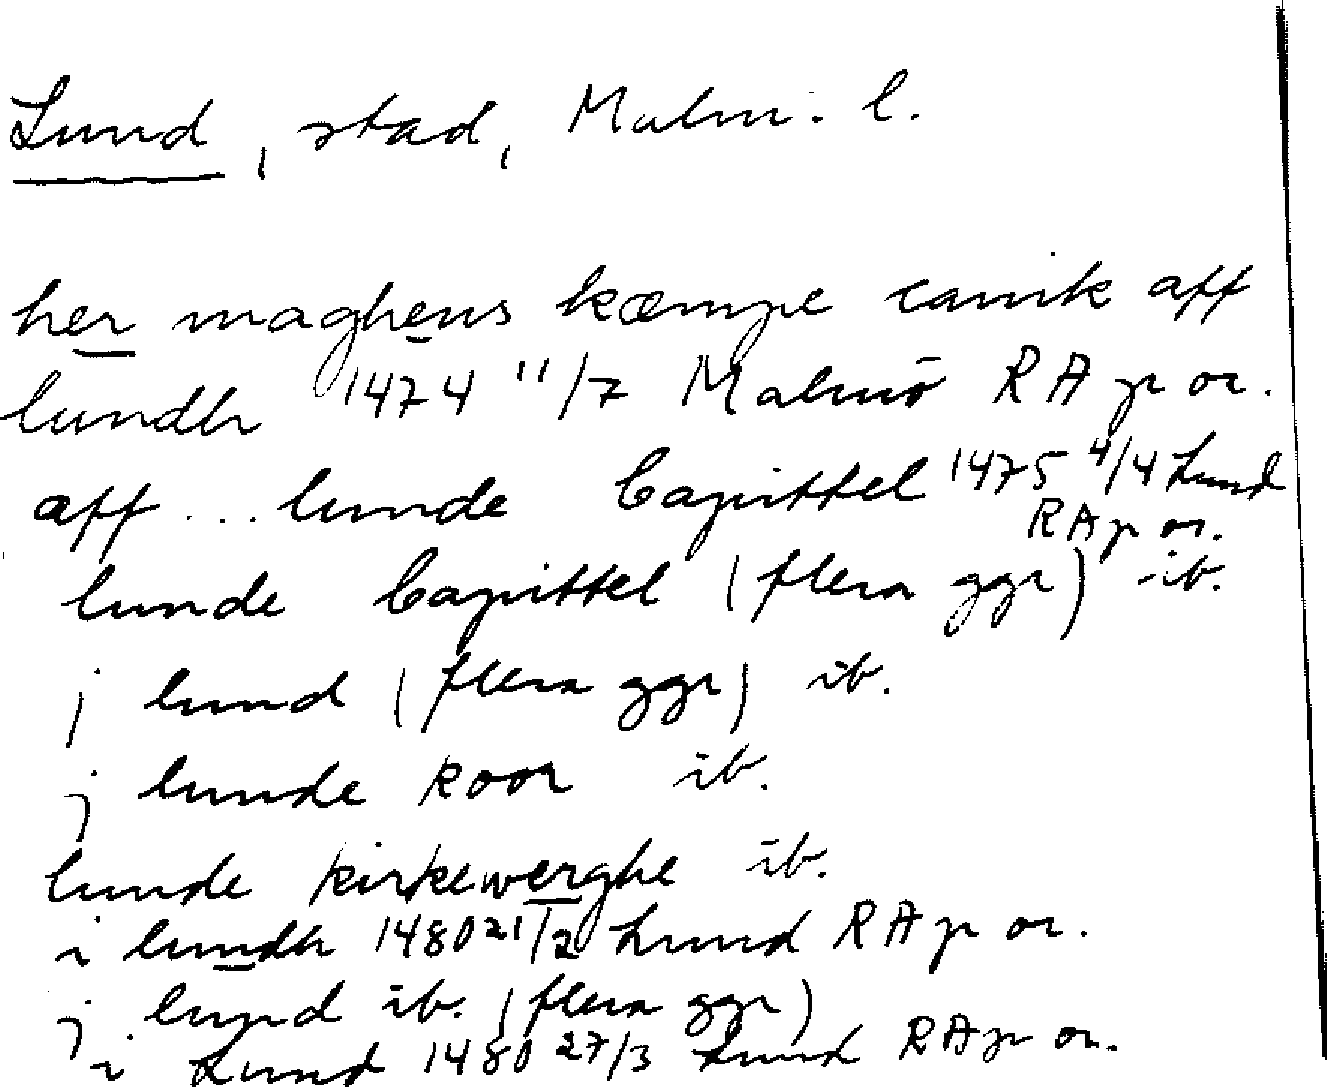 Lund, stad, Malm. l.
her maghens kæmpe canik aff
lundh 1474 11/7 Malmö RA p or.
aff ... lunde Capittel 1475 4/4 Lund
RA p or.
lunde Capittel (flera ggr) ib.
j lund (flera ggr) ib.
j lunde koor ib.
lunde kirkewerghe ib.
i lundh 1480 21/2 Lund RA p or.
j lund ib. (flera ggr)
i Lund 1480 27/3 Lund RA p or.